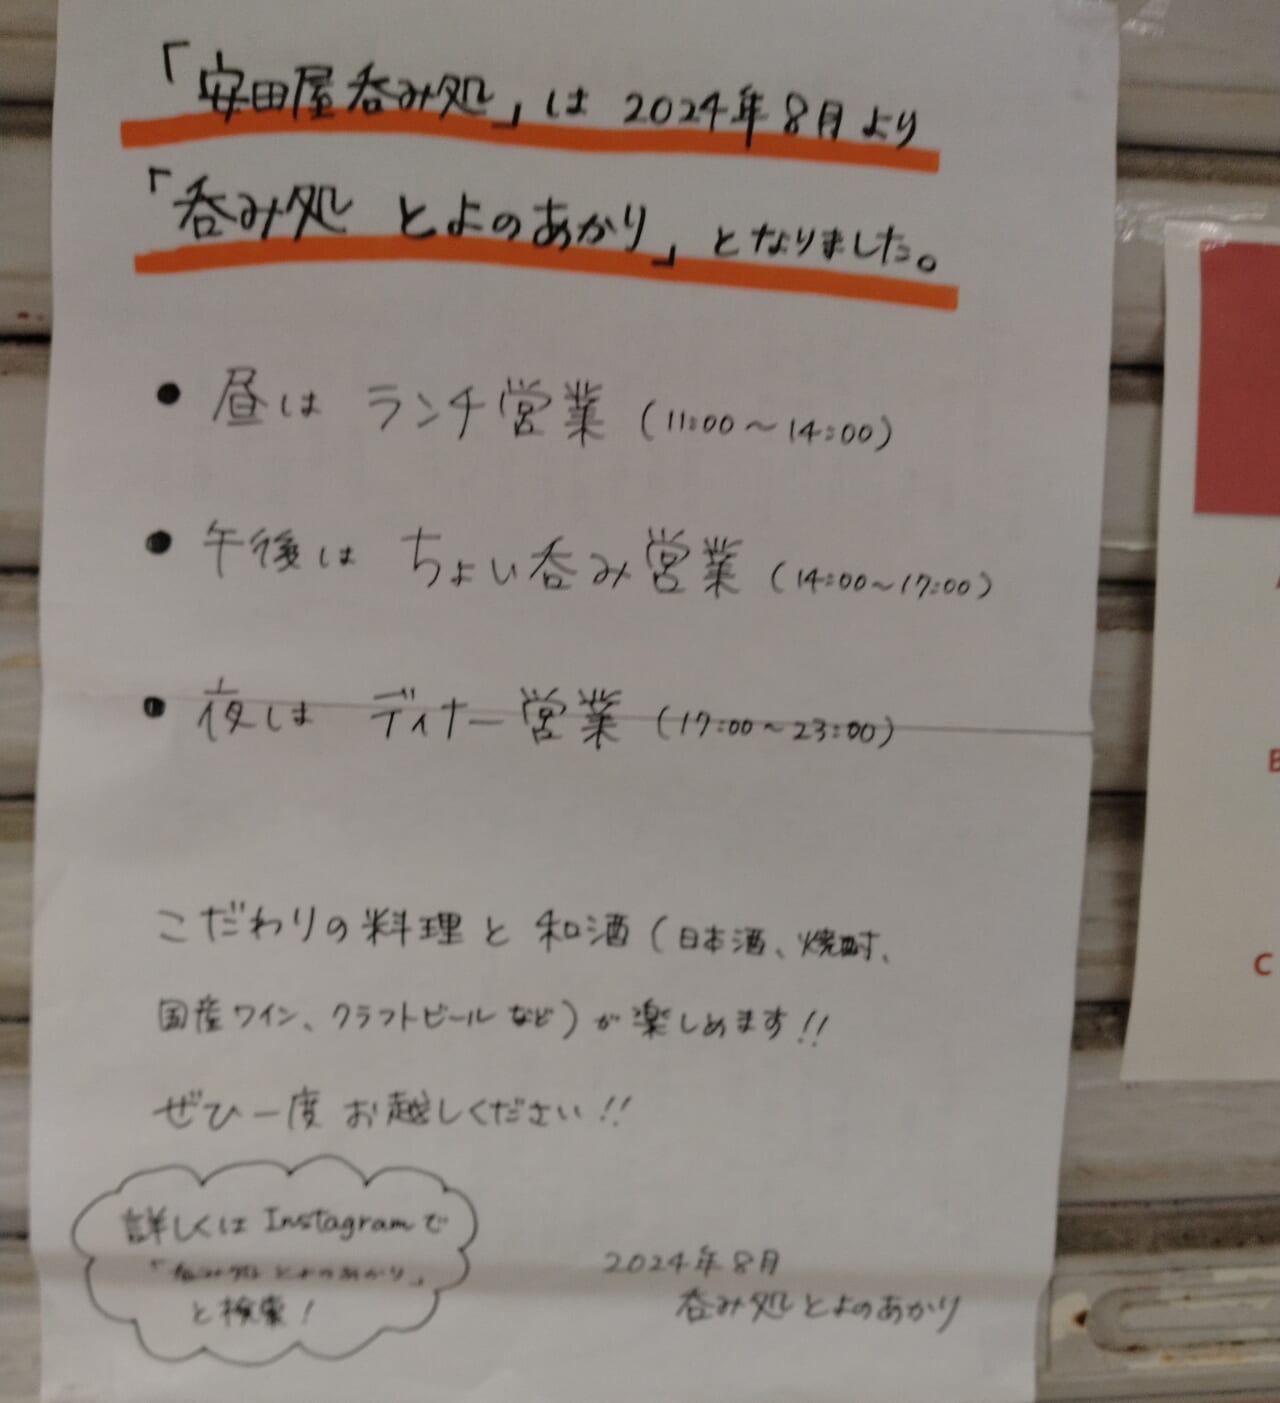 「安田屋呑み処」は 2024年8月より
「呑み処 とよのあかり」となりました。
● 昼は ランチ営業 (11:00～14:00)
● 午後は ちょい呑み営業 (14:00～17:00)
● 夜は ディナー営業 (17:00～23:00)
こだわりの料理と和酒(日本酒、焼酎、
国産ワイン、クラフトビールなど)が楽しめます!!
ぜひ一度お越しください!!
詳しくは Instagramで
「呑み処 とよのあかり」
と検索!
2024年8月
呑み処 とよのあかり
B
C